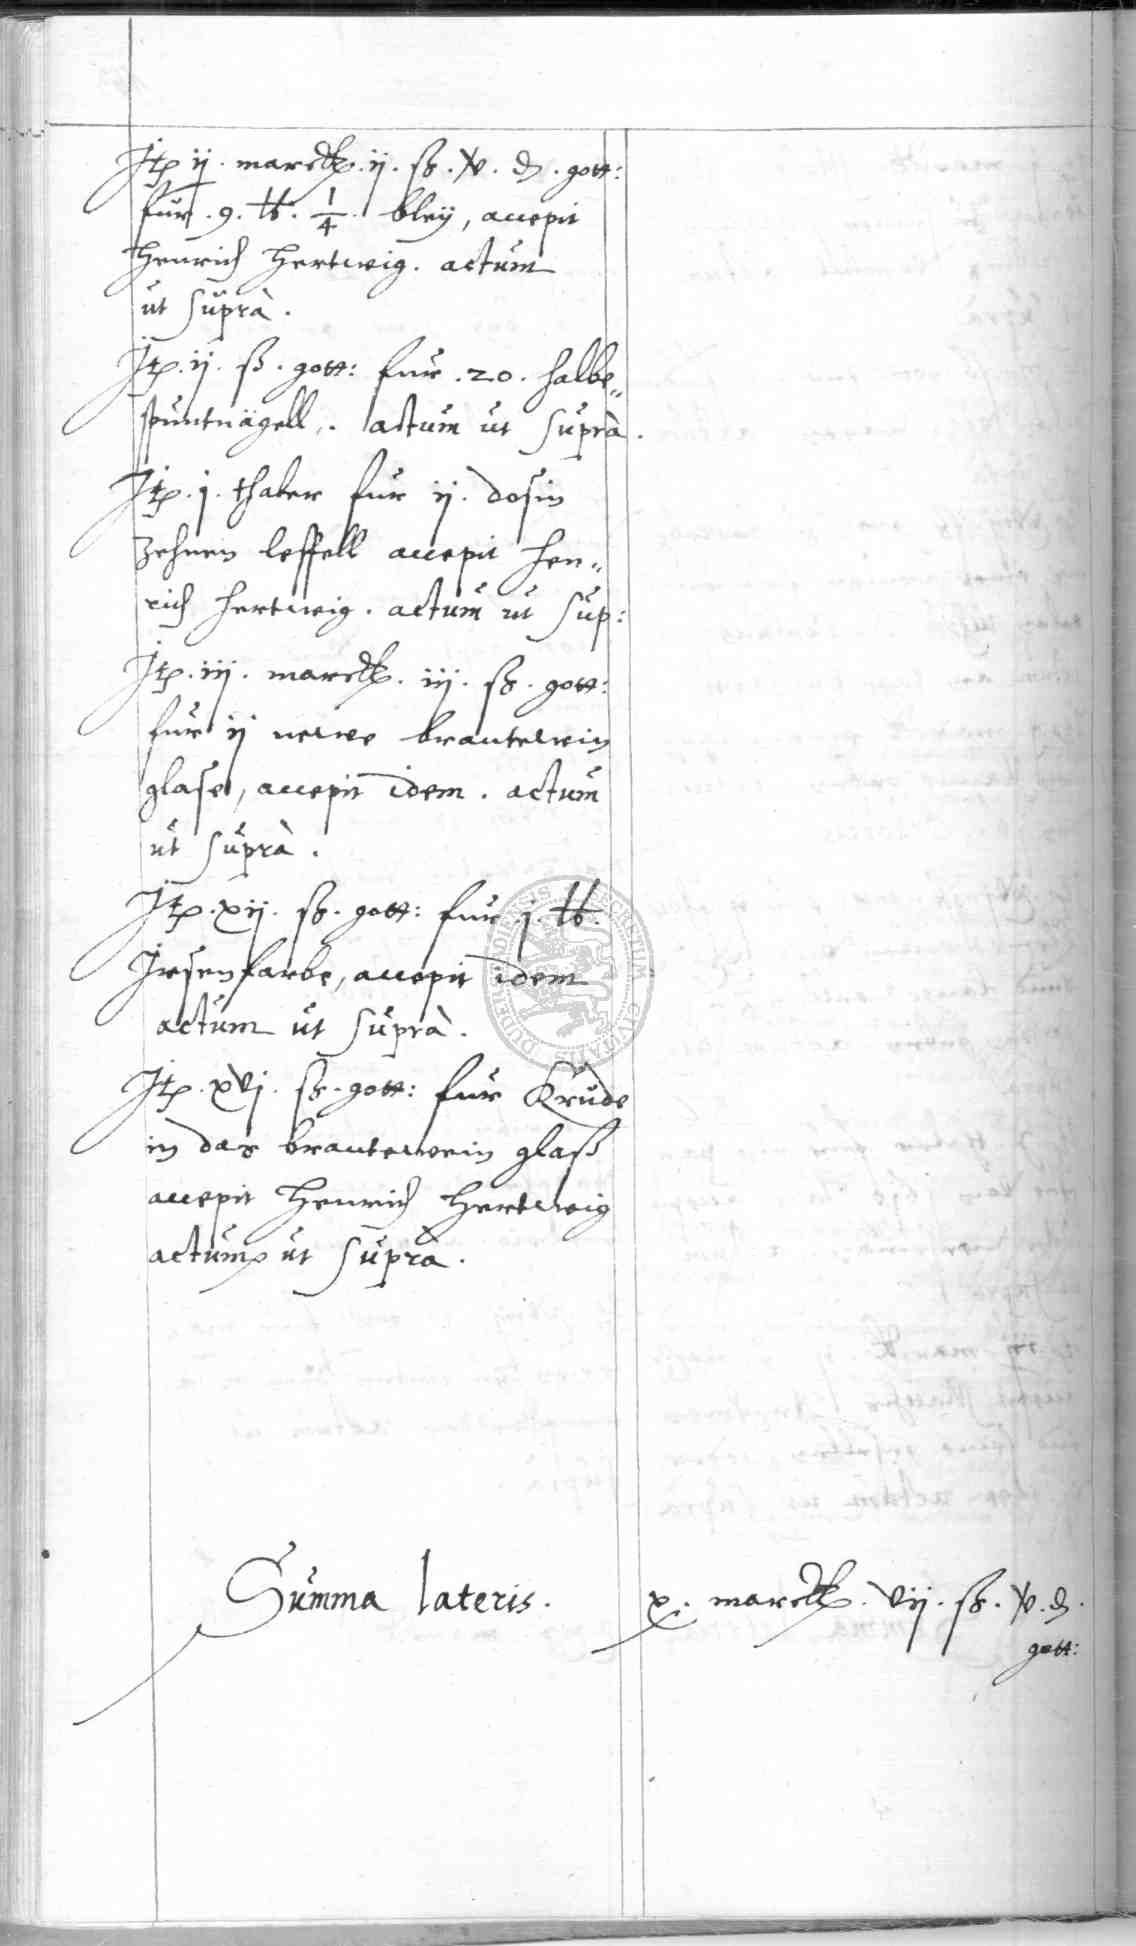 Jtem ij. marck. ij. ß. v. d. gott:
für .9. lb. 1/4. bleÿ, accepit
Henrich Hertwig. actum
ut suprà.
Jtem. ij. ß. gott: fur .20. halbe„
spuntnägell. actum ut suprà.
Jtem. j. thaler fur ij. dosin
Zehnen leffell accepit Hen„
rich Hertwig. actum ut sup:
Jtem. iij. marck. iij. ß. gott:
für ij newe brantewein
glase, accepit idem. actum
ut suprà.
Jtem. xij. ß. gott: fur j. lb.
Jesenfarbe, accepit idem
actum ut suprà.
Jtem. xvj. ß. gott: fur Krude
in das brantewein glaß
accepit Henrich Hertwig
actum ut suprà.
Summa lateris. x. marck. vij. ß. v. d.
gott:
SECRETUM CIVITATIS DUDERSTADIENSIS